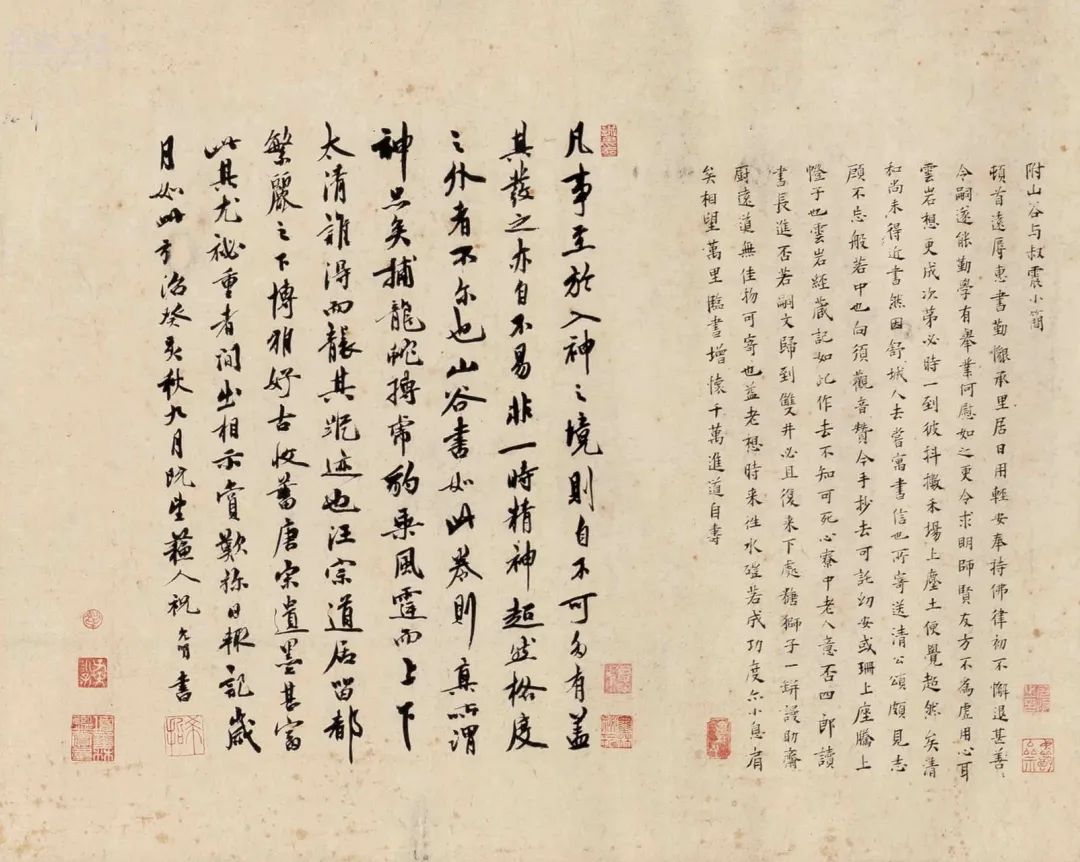 附山谷与叔震小簡
頓首遠辱惠書勤懃承里居日用輕安奉持佛律初不懈退甚善
令嗣遂能勤學有舉業何慰如之更令求明師賢友方不為虛用心耳
雲岩想更成次第必時一到彼抖擻禾場上塵土便覺超然矣清
和尚未得近書然因舒城人去嘗寓書信也所寄送清公頌頗見志
顧不忘般若中也向須觀音贊今手抄去可託幼安或珊上座騰上
憕子也雲岩經藏記如此作去不知可死心寮中老人意否四郎讀
書長進否若嗣文歸到雙井必且復來下處糖獅子一缾謾助齋
厨遠道無佳物可寄也益老想時来往水磑若成功度亦小息肩
矣相望萬里臨書增懷千萬進道自壽
凡事至於入神之境則自不可多有蓋
其發之亦自不易非一時精神超然格度
之外者不尔也山谷書如此卷則真所謂
神品矣捕龍蛇搏虎豹乘風霆而上下
太清誰得而襲其泥迹也汪宗道居留都
繁麗之下博雅好古收蓄唐宋遺墨甚富
此其尤祕重者間出相示賞歎弥日輒記歲
月如此弘治癸亥秋九月既望蘇人祝允明書